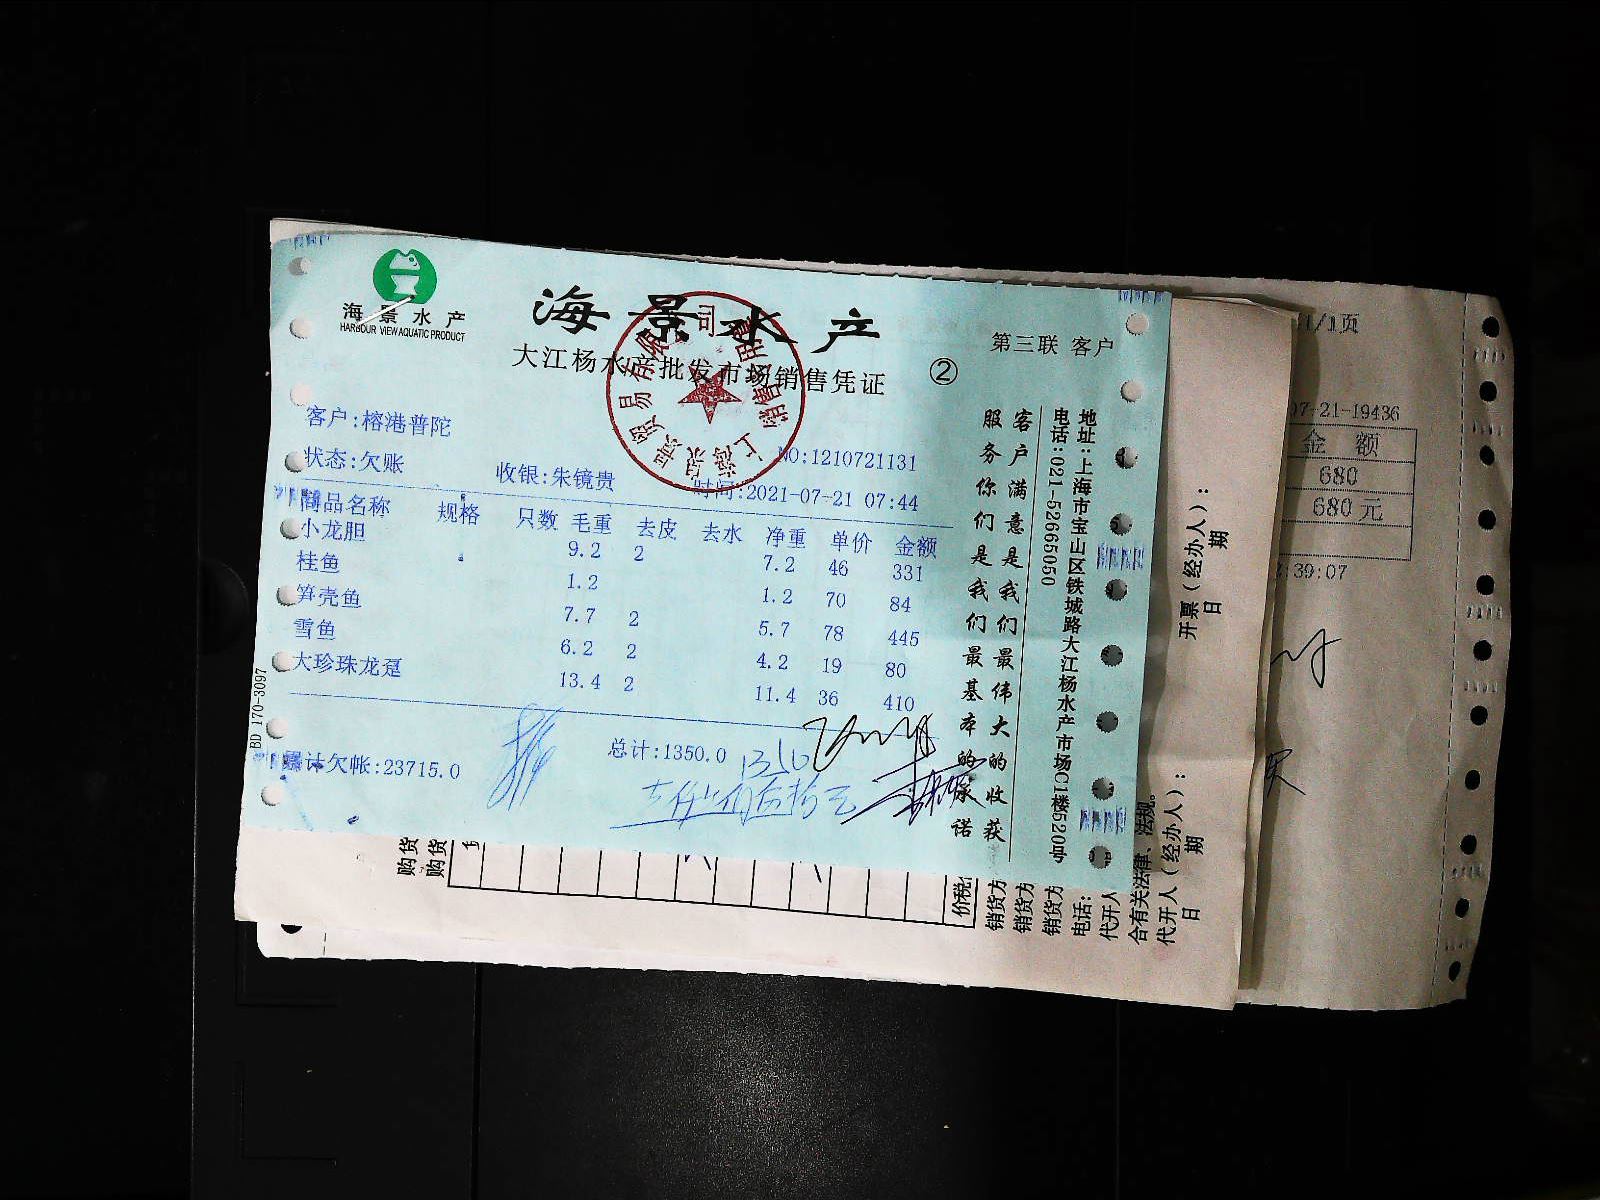 海景水产
HARBOUR VIEW AQUATIC PRODUCT
海景水产
大江杨水产批发市场销售凭证
②
第三联 客户
客户:榕港普陀
状态:欠账
收银:朱镜贵
NO:1210721131
时间:2021-07-21 07:44
商品名称 规格 只数 毛重 去皮 去水 净重 单价 金额
小龙胆 9.2 2 7.2 46 331
桂鱼 1.2 1.2 70 84
笋壳鱼 7.7 2 5.7 78 445
雪鱼 6.2 2 4.2 19 80
大珍珠龙趸 13.4 2 11.4 36 410
总计:1350.0
累计欠帐:23715.0
BD 170-3097
客户满意是我们最伟大的收获
服务你们是我们最基本的承诺
地址:上海市宝山区铁城路大江杨水产市场C1楼520号
电话:021-52665050
司
销售专用章
1/1页
07-21-19436
金 额
680
680 元
:39:07
开票(经办人):
日 期
购货
购货
价税
销货方
销货方
销货方
电话:
代开人
合有关法律、法规。
代开人(经办人):
日 期